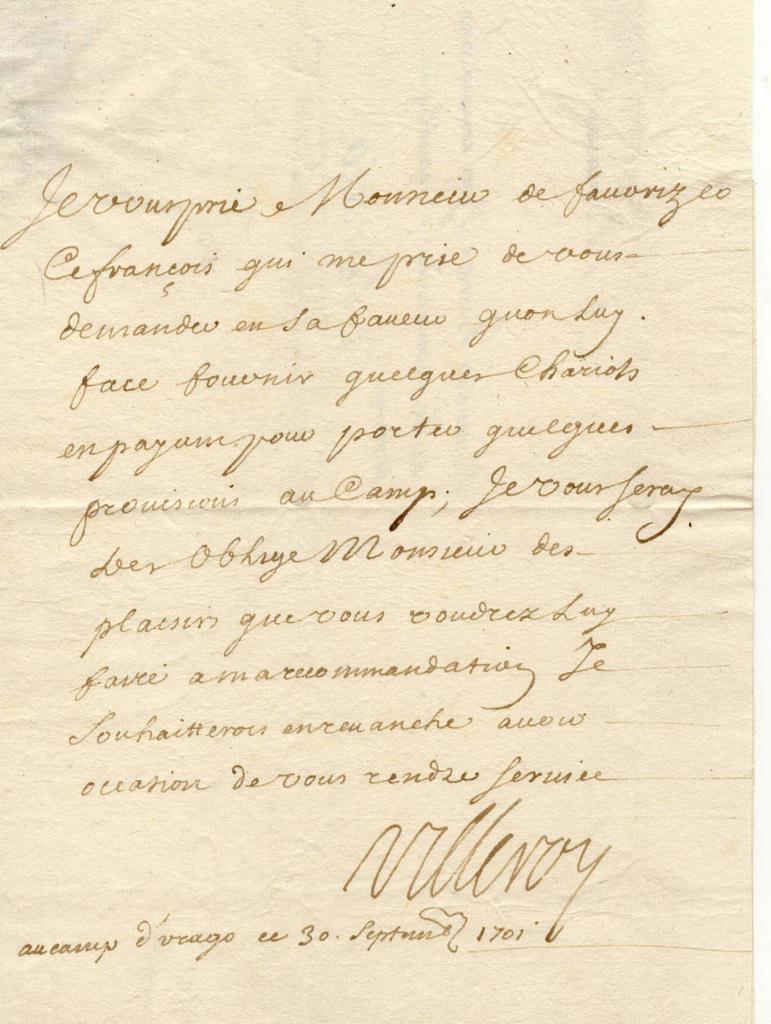 Je vous prie Monsieur de favorizer
Ce françois qui me prie de vous
demander en sa faveur quon Luy
face fournir quelques Chariots
en payant pour porter quelques
provisions au Camp; Je vous seray
tres Oblige Monsieur des
plaisirs que vous voudrez Luy
faire a ma recommandation Je
souhaitterois en revanche avoir
occasion de vous rendre service
Villeroy
au camp d'vrago ce 30. Septemb 1701